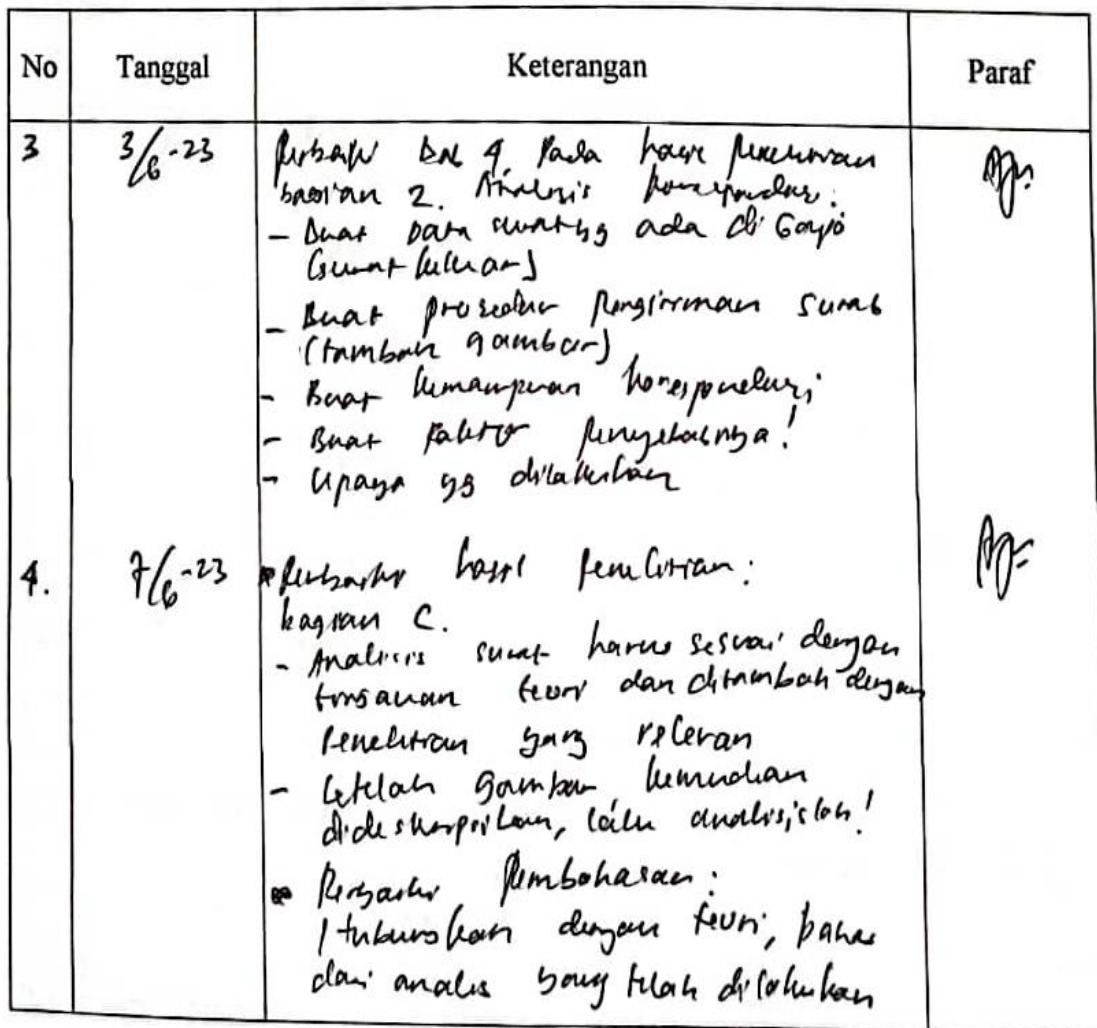 No Tanggal Keterangan Paraf
3 3/6-23 Perbaiki Bab 4 Pada hasil penelitian
bagian 2. Analisis korespondensi:
- Buat data surat yg ada di
(surat keluar)
- Buat prosedur Pengiriman surat
(tambah gambar)
- Buat kemampuan korespondensi
- Buat Faktor penyebabnya!
- Upaya yg dilakukan
4. 7/6-23 Perbaiki hasil Penelitian:
bagian C.
- Analisis surat harus sesuai dengan
tinjauan teori dan ditambah dengan
Penelitian yang relevan
- Setelah gambar kemudian
dideskripsikan, lalu analisislah!
Perbaiki Pembahasan:
Hubungkan dengan teori, bahas
dari analis yang telah dilakukan